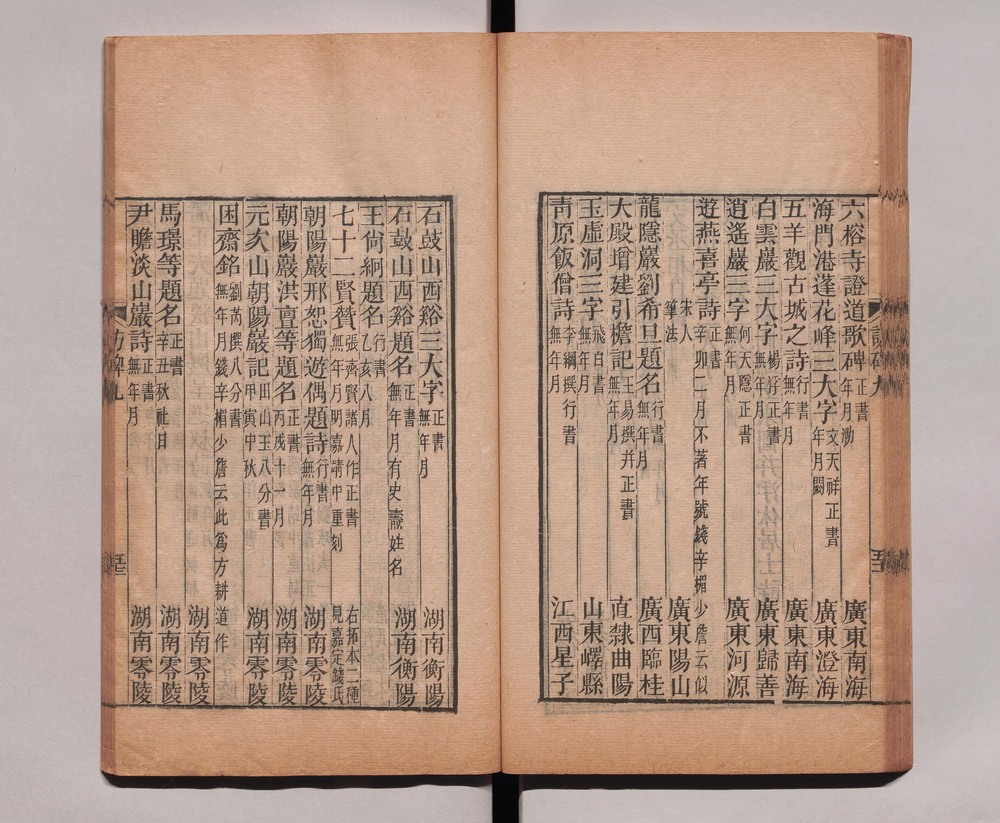 六榕寺證道歌碑 正書 年月泐 廣東南海
海門港蓬花峰三大字 文天祥正書 年月闕 廣東澄海
五羊觀古城之詩 行書 無年月 廣東南海
白雲巖三大字 楊 正書 無年月 廣東歸善
逍遙巖三字 何天隱正書 無年月 廣東河源
遊燕喜亭詩 正書 辛卯二月不著年號錢辛楣少詹云似
宋人筆法 廣東陽山
龍隱巖劉希旦題名 行書 無年月 廣西臨桂
大殿增建引檐記 王易撰并正書 無年月 直隸曲陽
玉虛洞三字 飛白書 無年月 山東嶧縣
靑原飯僧詩 李綱撰行書 無年月 江西星子
訪碑九
石鼓山西谿三大字 正書 無年月 湖南衡陽
石鼓山西谿題名 正書 無年月有史 姓名 湖南衡陽
王尙絅題名 行書 乙亥八月
七十二賢贊 張齊賢諸人作正書 無年月明嘉靖中重刻 右拓本二種 見嘉定錢氏
朝陽巖邢恕獨遊偶題詩 行書 無年月 湖南零陵
朝陽巖洪亶等題名 正書 丙戌十一月 湖南零陵
元次山朝陽巖記 田山玉八分書 甲寅中秋 湖南零陵
困齋銘 劉芮撰八分書 無年月錢辛楣少詹云此爲方耕道作
湖南零陵
馬璟等題名 正書 辛丑秋社日 湖南零陵
尹瞻淡山巖詩 正書 無年月 湖南零陵
訪碑九